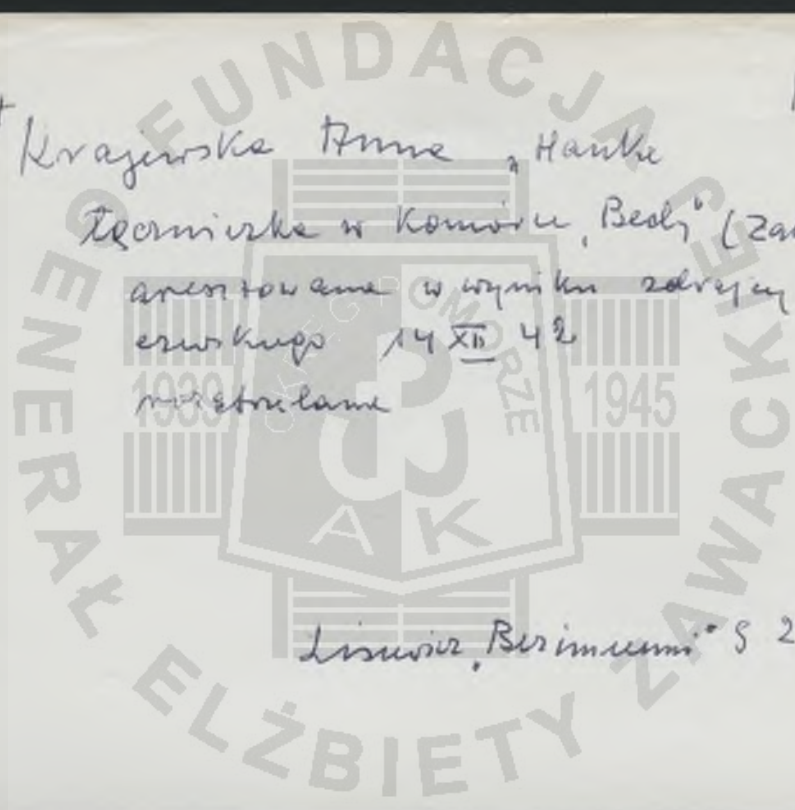 Krajewska Anna „Hanka
łączniczka w Komórce „Bedy" (Za
aresztowana w wyniku zdrajcy
erwskiego 14 XII 42
rozstrzelana
Lisiewicz „Bezimienni" S 2
FUNDACJA
GENERAŁ ELŻBIETY ZAWACKIEJ
OKRĘG POMORZE
1939 1945
AK